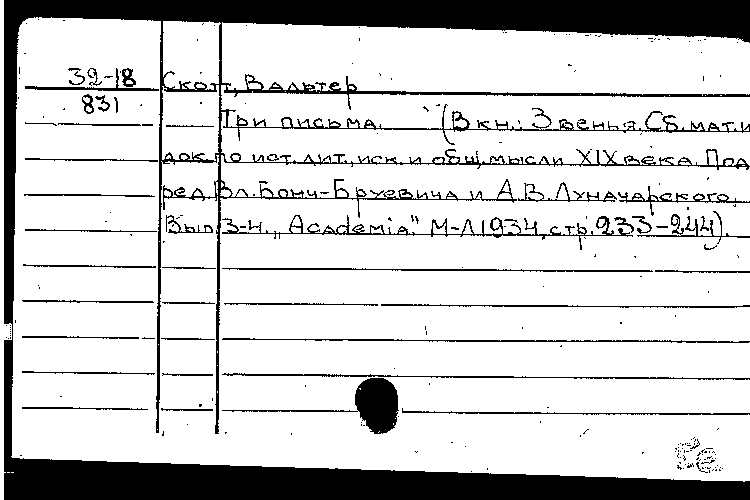 39-18
831
Скотт, Вальтер
Три письма. (В кн.: Звенья. Сб. мат. и
док по ист. лит., иск. и общ. мысли XIX века. Под
ред. Вл. Бонч-Бруевича и А.В. Луначарского.
Вып. 3-4. „Academia". М-Л 1934, стр. 233-244).